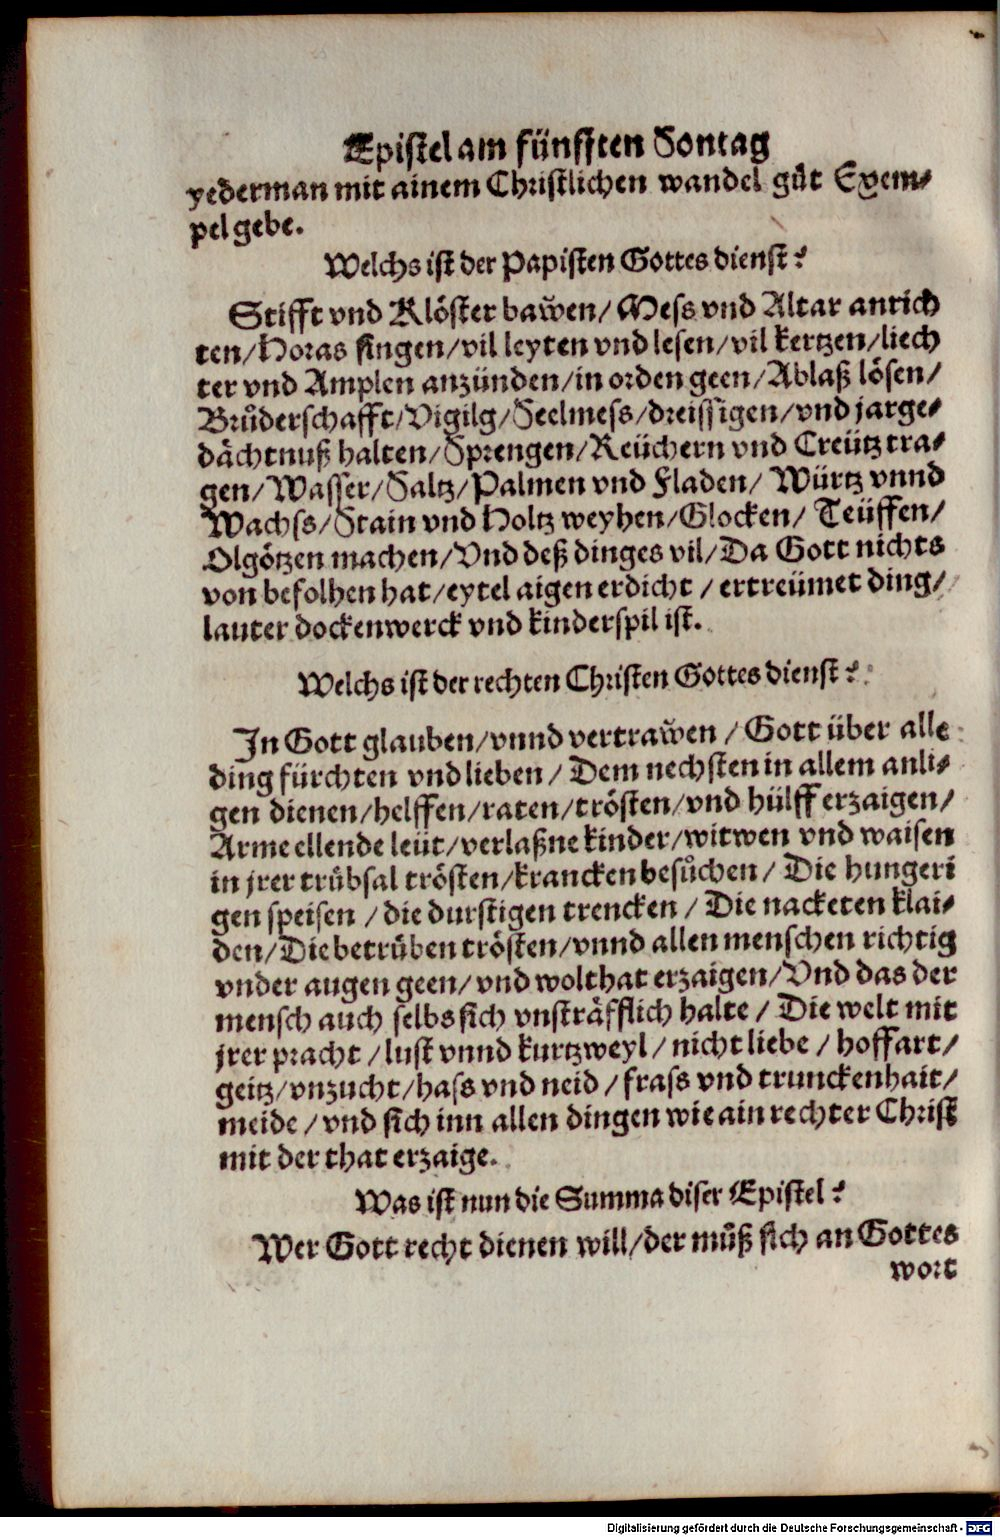 Epistel am fünfften Sontag
yederman mit ainem Christlichen wandel gůt Exem-
pel gebe.
Welchs ist der Papisten Gottes dienst?
Stifft vnd Klöster bawen/ Mess vnd Altar anrich
ten/ Horas singen/ vil leyten vnd lesen/ vil kertzen/ liech
ter vnd Amplen anzünden/ in orden geen/ Ablaß lösen/
Brůderschafft/ Vigilg/ Seelmess/ dreissigen/ vnd jarge-
dächtnuß halten/ Sprengen/ Reüchern vnd Creütz tra-
gen/ Wasser/ Saltz/ Palmen vnd Fladen/ Würtz vnnd
Wachss/ Stain vnd Holtz weyhen/ Glocken/ Teüffen/
Olgötzen machen/ Vnd deß dinges vil/ Da Gott nichts
von befolhen hat/ eytel aigen erdicht / ertreümet ding/
lauter dockenwerck vnd kinderspil ist.
Welchs ist der rechten Christen Gottes dienst?
In Gott glauben/ vnnd vertrawen / Gott über alle
ding fürchten vnd lieben / Dem nechsten in allem anli-
gen dienen/ helffen/ raten/ trösten/ vnd hülff erzaigen/
Arme ellende leüt/ verlaßne kinder/ witwen vnd waisen
in jrer trübsal trösten/ krancken besůchen / Die hungeri
gen speisen / die durstigen trencken / Die nacketen klai-
den/ Die betrüben trösten/ vnnd allen menschen richtig
vnder augen geen/ vnd wolthat erzaigen/ Vnd das der
mensch auch selbs sich vnsträfflich halte / Die welt mit
jrer pracht / lust vnnd kurtzweyl / nicht liebe / hoffart/
geitz/ vnzucht/ hass vnd neid / frass vnd trunckenhait/
meide / vnd sich inn allen dingen wie ain rechter Christ
mit der that erzaige.
Was ist nun die Summa diser Epistel?
Wer Gott recht dienen will/ der můß sich an Gottes
wort
Digitalisierung gefördert durch die Deutsche Forschungsgemeinschaft - DFG